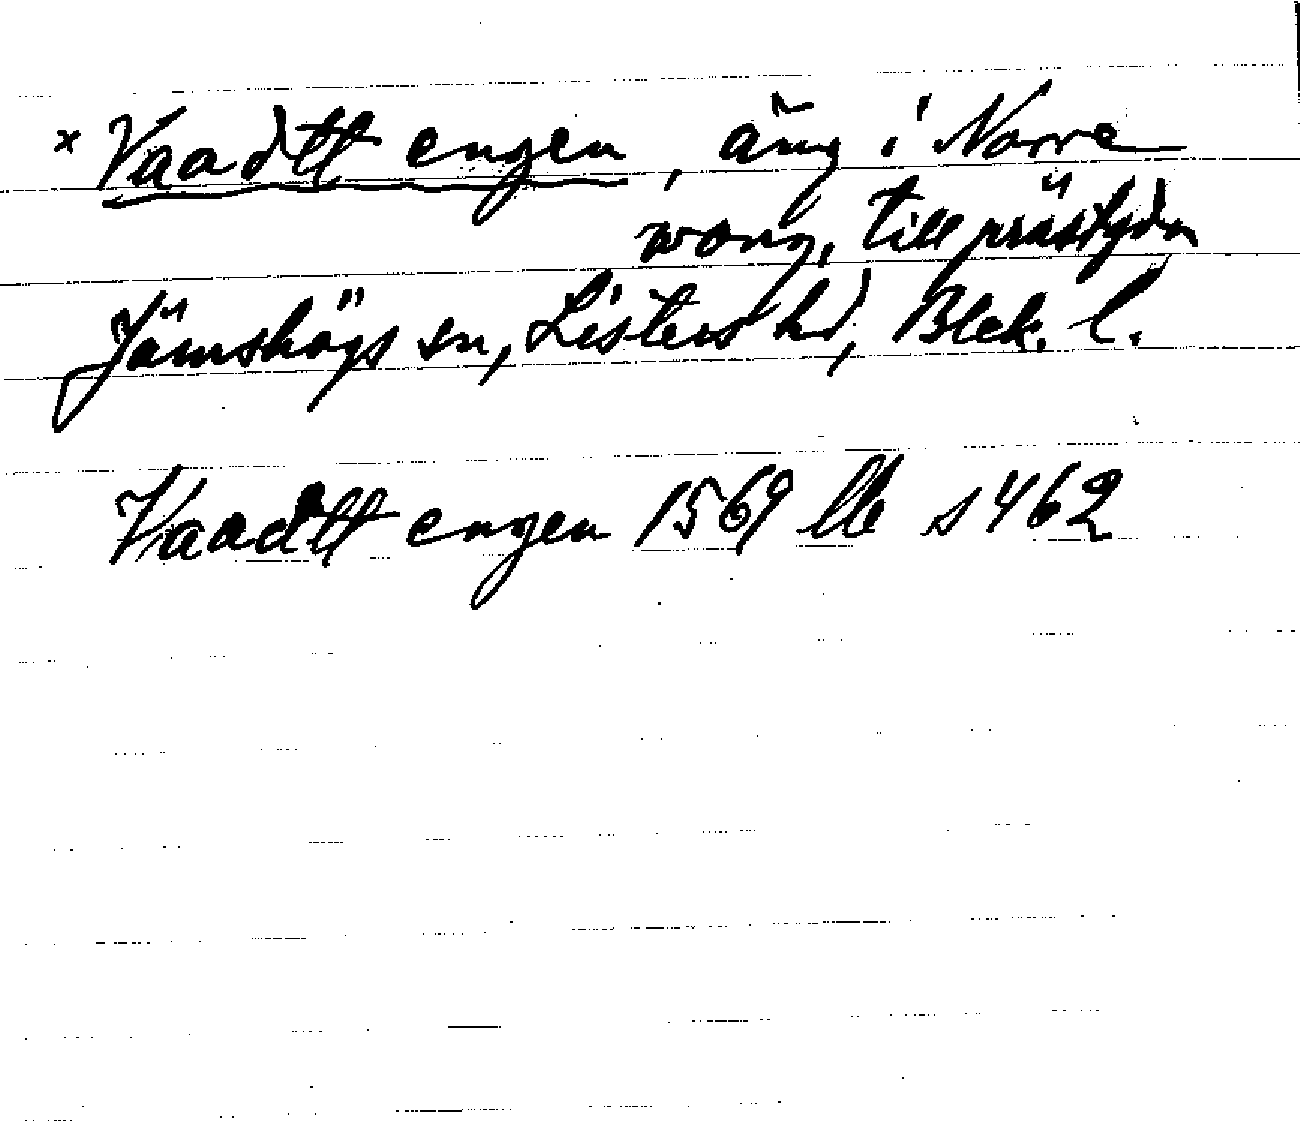 x Vaadtt engen, äng i Norre
wong, till prästgdn
Jämshögs sn, Listers hd, Blek. l.
Vaadtt engen 1569 llb s 462